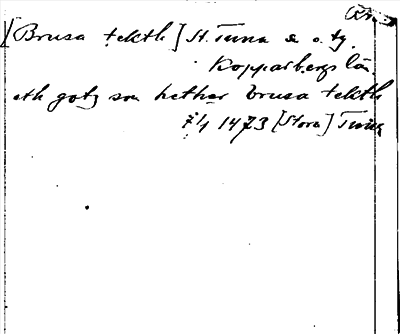 [Brusa tekth] St. Tuna sn o. tg.
Kopparbergs län.
eth gotz som hether brusa tekth
7/4 1473 [Stora] Tuna